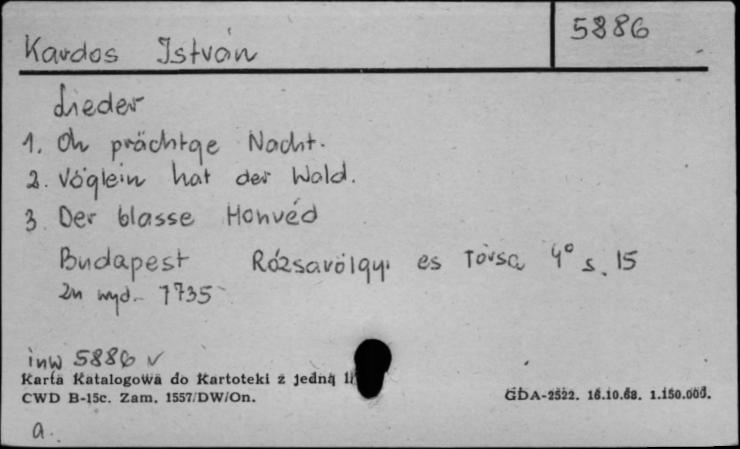 5886
Kardos István
Lieder
1. Oh prächtge Nacht.
2. Vöglein hat der Wald.
3 Der blasse Honvéd
Budapest Rózsavölgyi es Társa 4° s. 15
Zn wyd. 7735
inw 5886 v
Karta Katalogowa do Kartoteki z jedną
CWD B-15c. Zam. 1557/DW/On.
GDA-2522. 16.10.68. 1.150.000.
a.